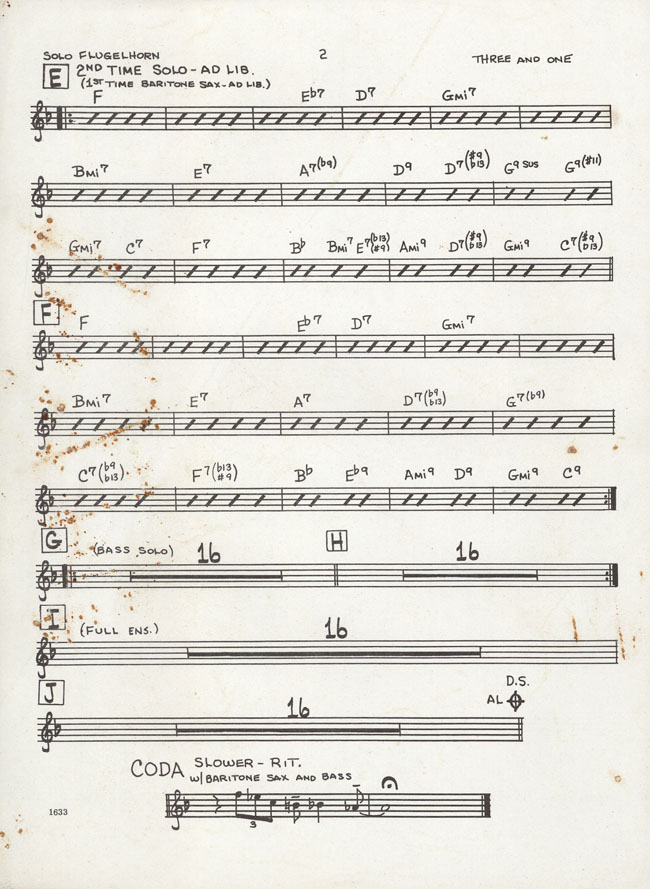 SOLO FLUGELHORN 2 THREE AND ONE
E 2ND TIME SOLO - AD LIB.
(1ST TIME BARITONE SAX - AD LIB.)
F Eb7 D7 Gmi7
Bmi7 E7 A7(b9) D9 D7(#9 b13) G9 sus G9(#11)
Gmi7 C7 F7 Bb Bmi7 E7(b13 #9) Ami9 D7(#9 b13) Gmi9 C7(#9 b13)
F
F Eb7 D7 Gmi7
Bmi7 E7 A7 D7(b9 b13) G7(b9)
C7(b9 b13) F7(b13 #9) Bb Eb9 Ami9 D9 Gmi9 C9
G (BASS SOLO) 16 H 16
I (FULL ENS.) 16
J 16 D.S.
AL
CODA SLOWER - RIT.
W/ BARITONE SAX AND BASS
3
1633